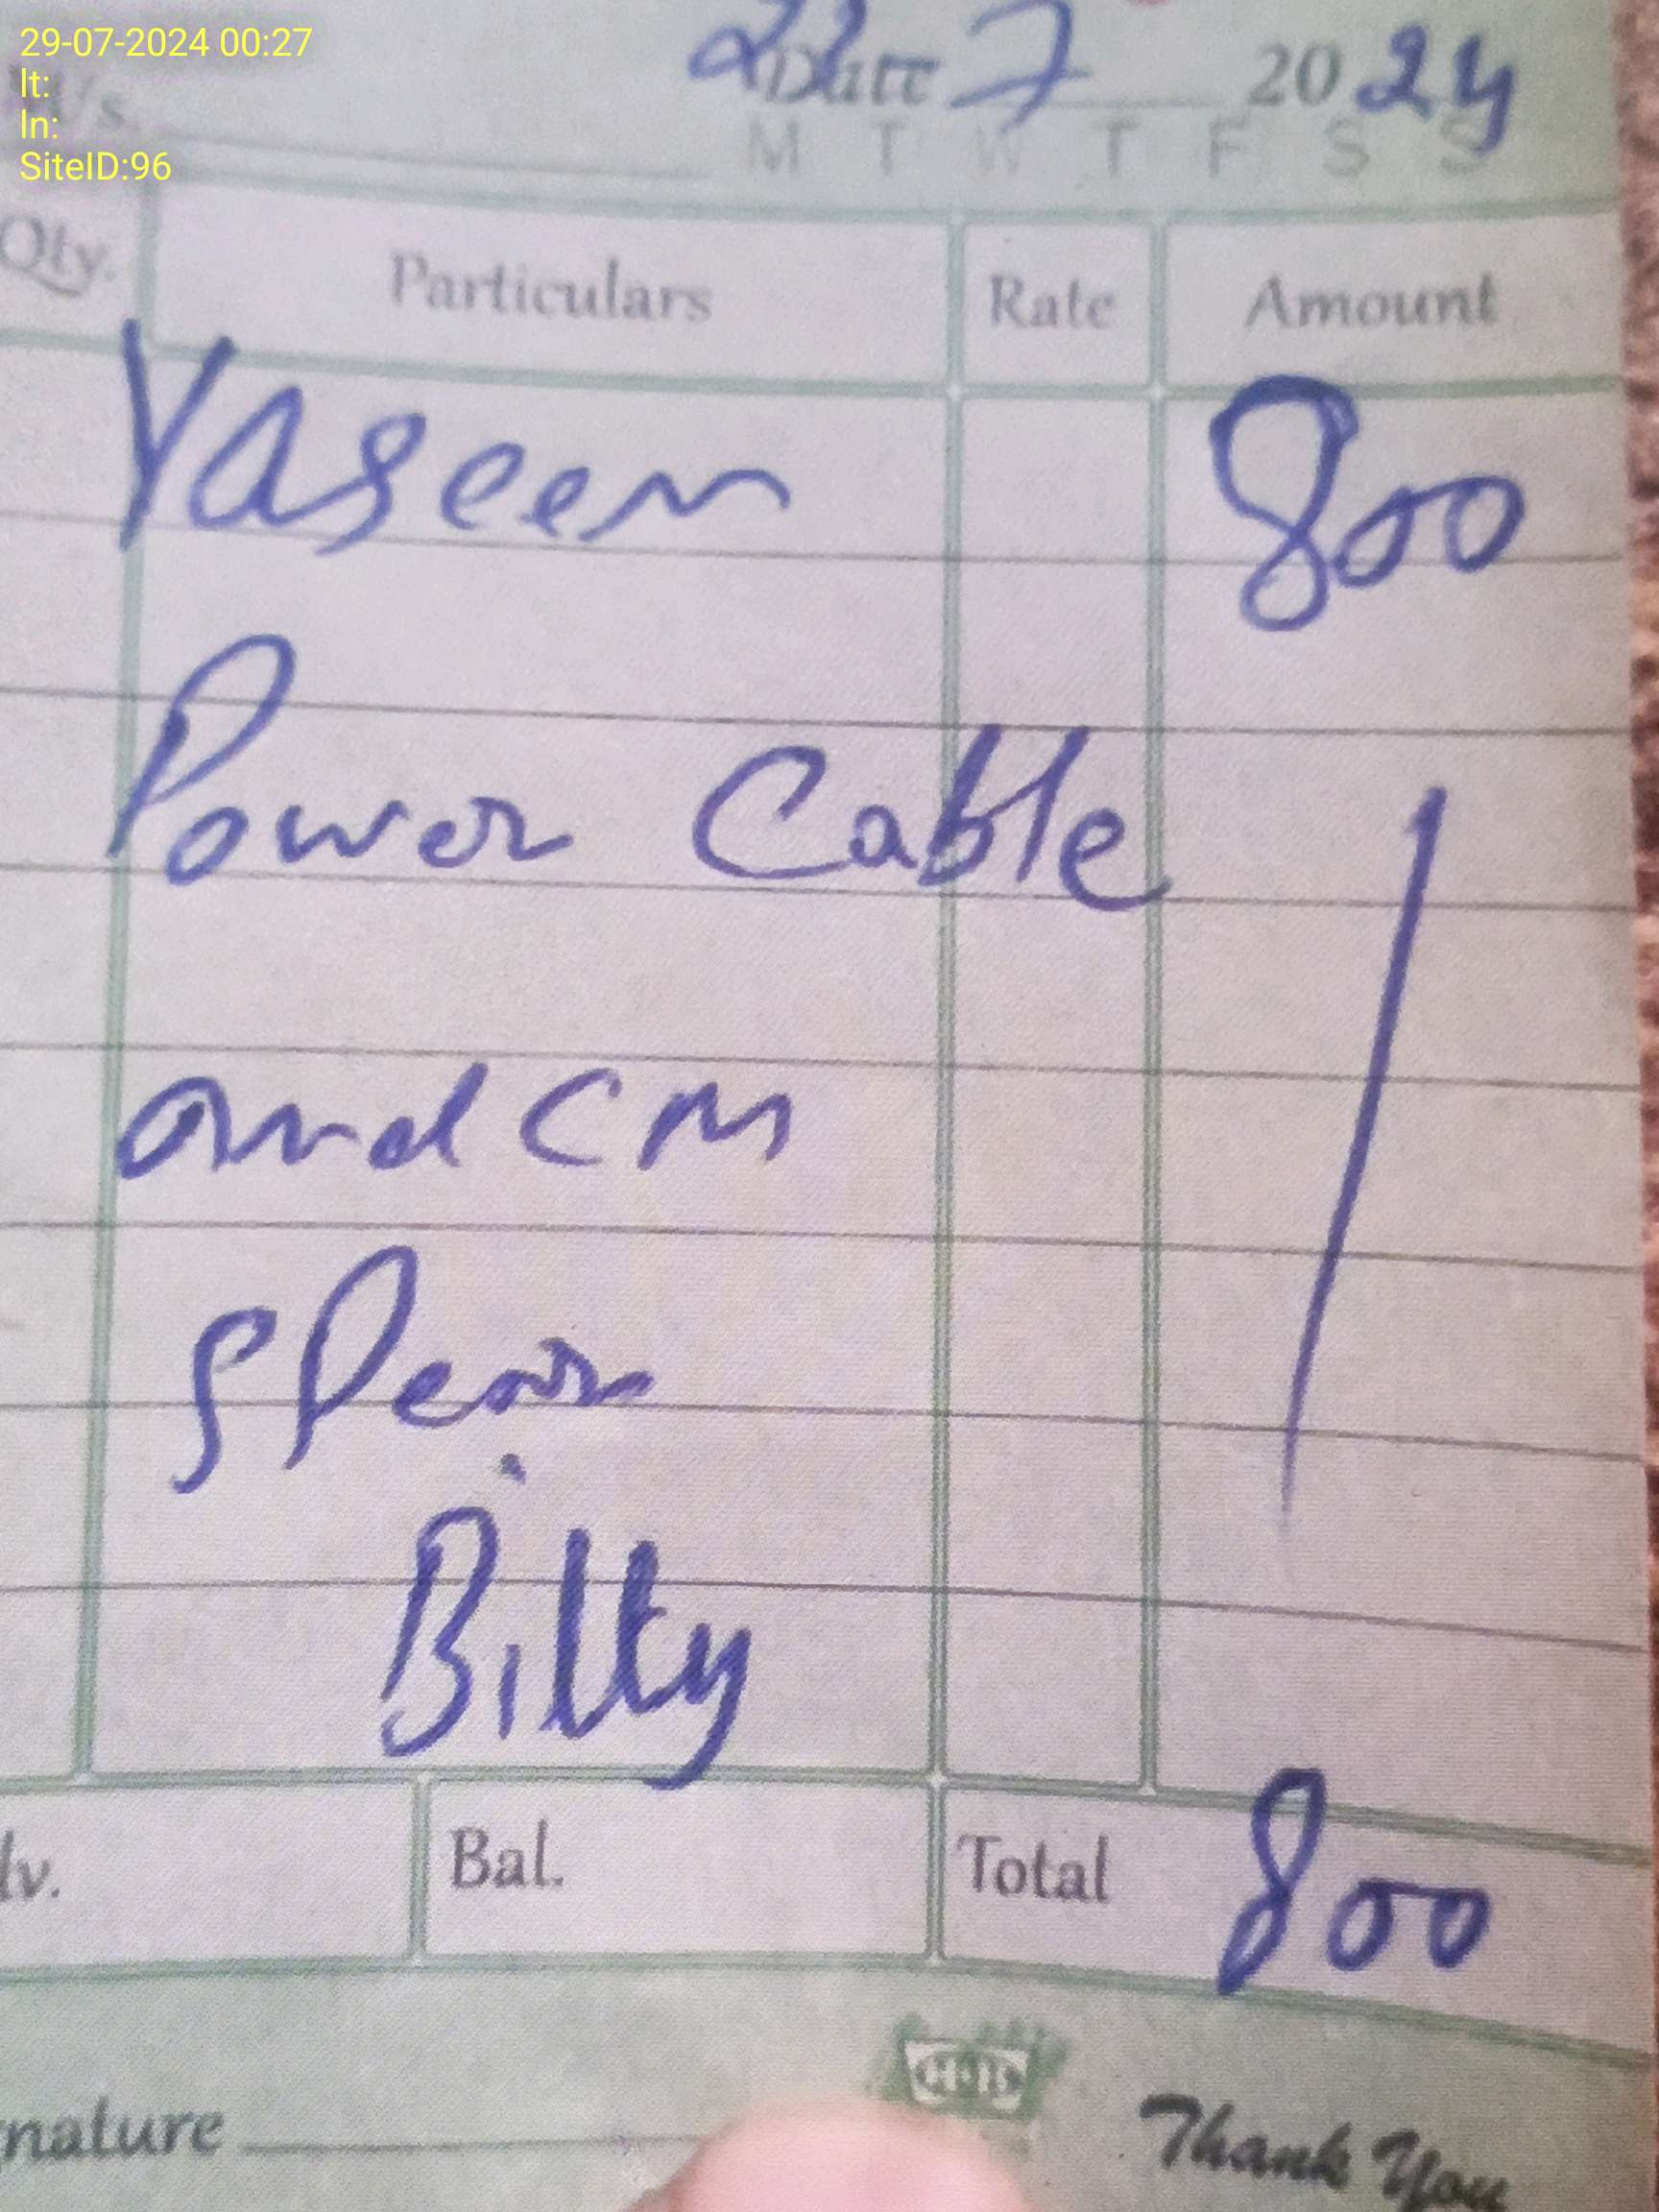 29-07-2024 00:27
lt:
ln:
SiteID:96
Date 7 2024
M/s.
M T W T F S S
Qty. Particulars Rate Amount
Yaseen 800
Power Cable
and CM
Bilty
lv. Bal. Total 800
nature
Thank You